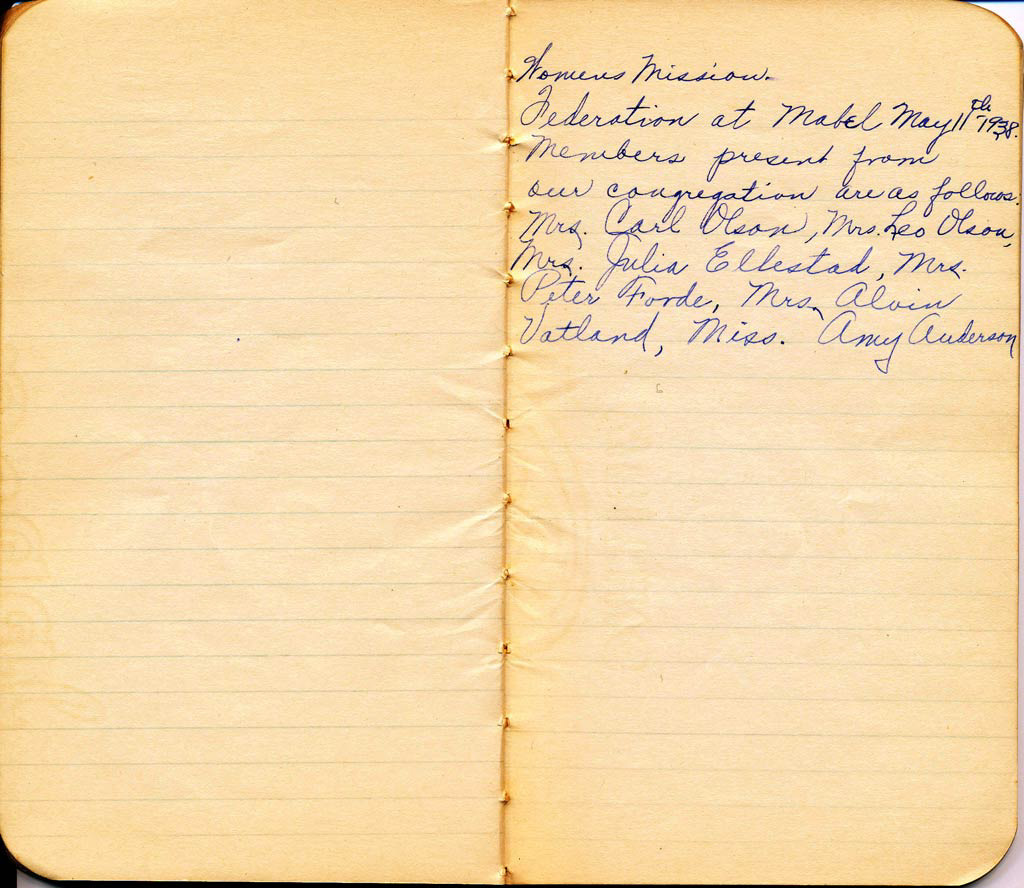 Womens Mission.
Federation at Mabel May 11th 1938.
Members present from
our congregation are as follows:
Mrs. Carl Olson, Mrs. Leo Olson,
Mrs. Julia Ellestad, Mrs.
Peter Forde, Mrs. Alvin
Vatland, Miss. Amy Anderson